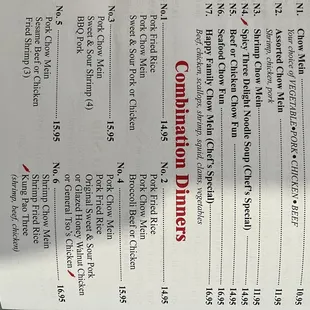 N1. Chow Mein 10.95
Your choice of VEGETABLE•PORK•CHICKEN•BEEF
N2. Assorted Chow Mein 11.95
Shrimp, chicken, pork
N3. Shrimp Chow Mein 11.95
N4. Spicy Three Delight Noodle Soup (Chef's Special) 14.95
N5. Beef or Chicken Chow Fun 14.95
N6. Seafood Chow Fun 16.95
N7. Happy Family Chow Mein (Chef's Special) 16.95
Beef, chicken, scallops, shrimp, squid, clams, vegetables
Combination Dinners
No.1 14.95
Pork Fried Rice
Pork Chow Mein
Sweet & Sour Pork or Chicken
No. 2 14.95
Pork Fried Rice
Pork Chow Mein
Broccoli Beef or Chicken
No.3 15.95
Pork Chow Mein
Sweet & Sour Shrimp (4)
BBQ Pork
No. 4 15.95
Pork Chow Mein
Pork Fried Rice
Original Sweet & Sour Pork
or Glazed Honey Walnut Chicken
or General Tso's Chicken
No. 5 15.95
Pork Chow Mein
Sesame Beef or Chicken
Fried Shrimp (3)
No. 6 16.95
Shrimp Chow Mein
Shrimp Fried Rice
Kung Pao Three
(shrimp, beef, chicken)